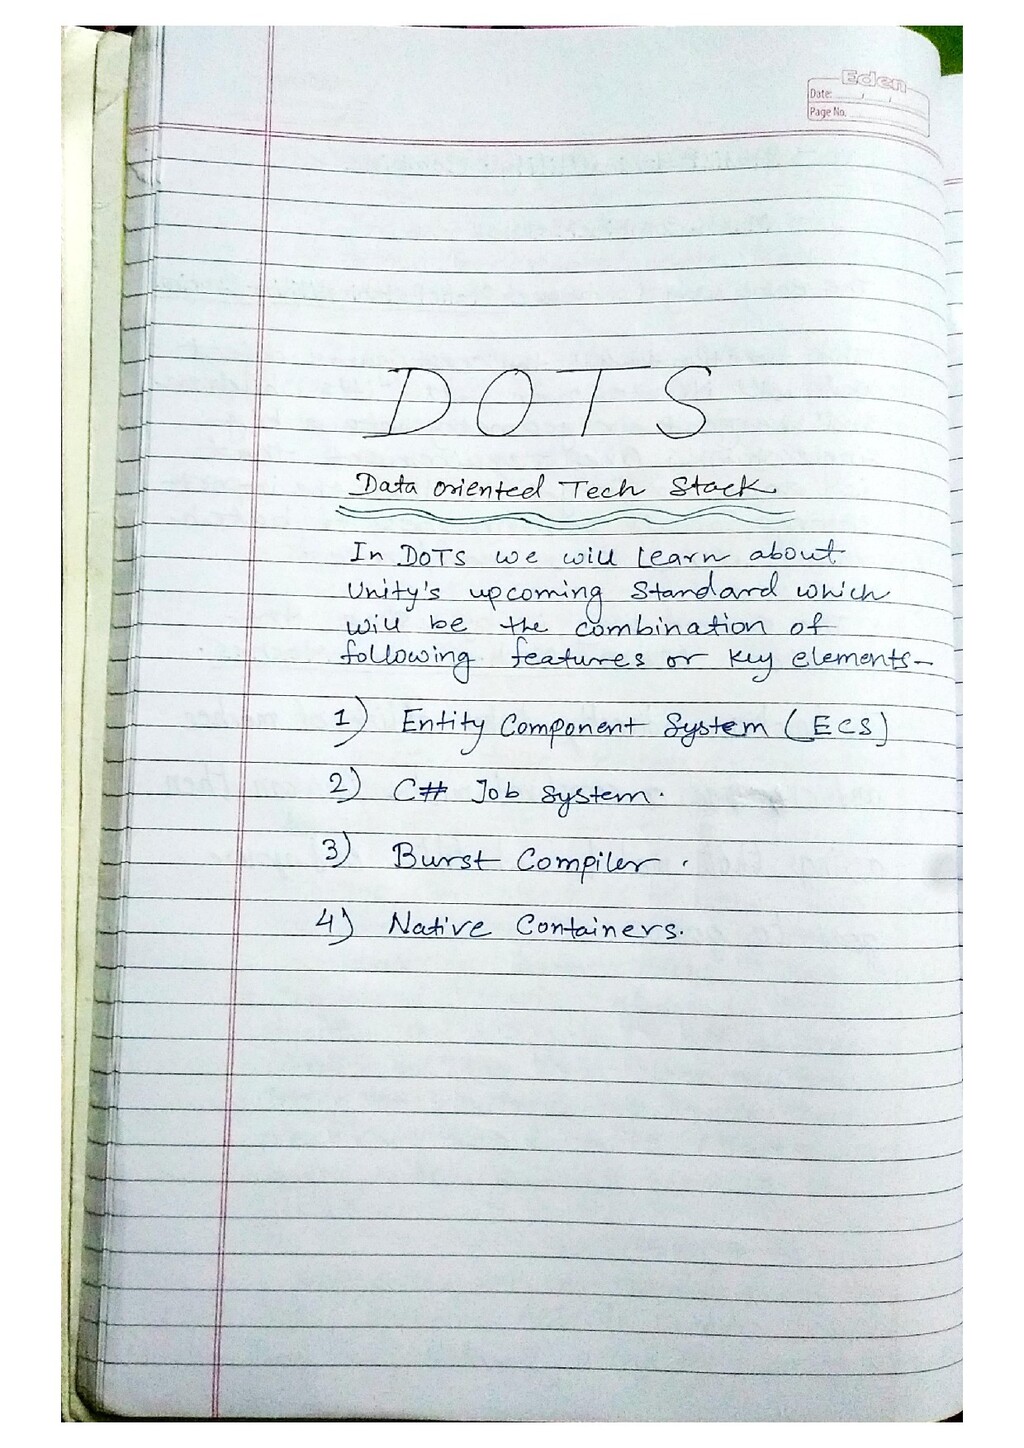 Eden
Date:
Page No.
DOTS
Data oriented Tech Stack
In DOTS we will Learn about
Unity's upcoming Standard which
will be the combination of
following features or key elements-
1) Entity Component System (ECS)
2) C# Job System.
3) Burst Compiler.
4) Native Containers.